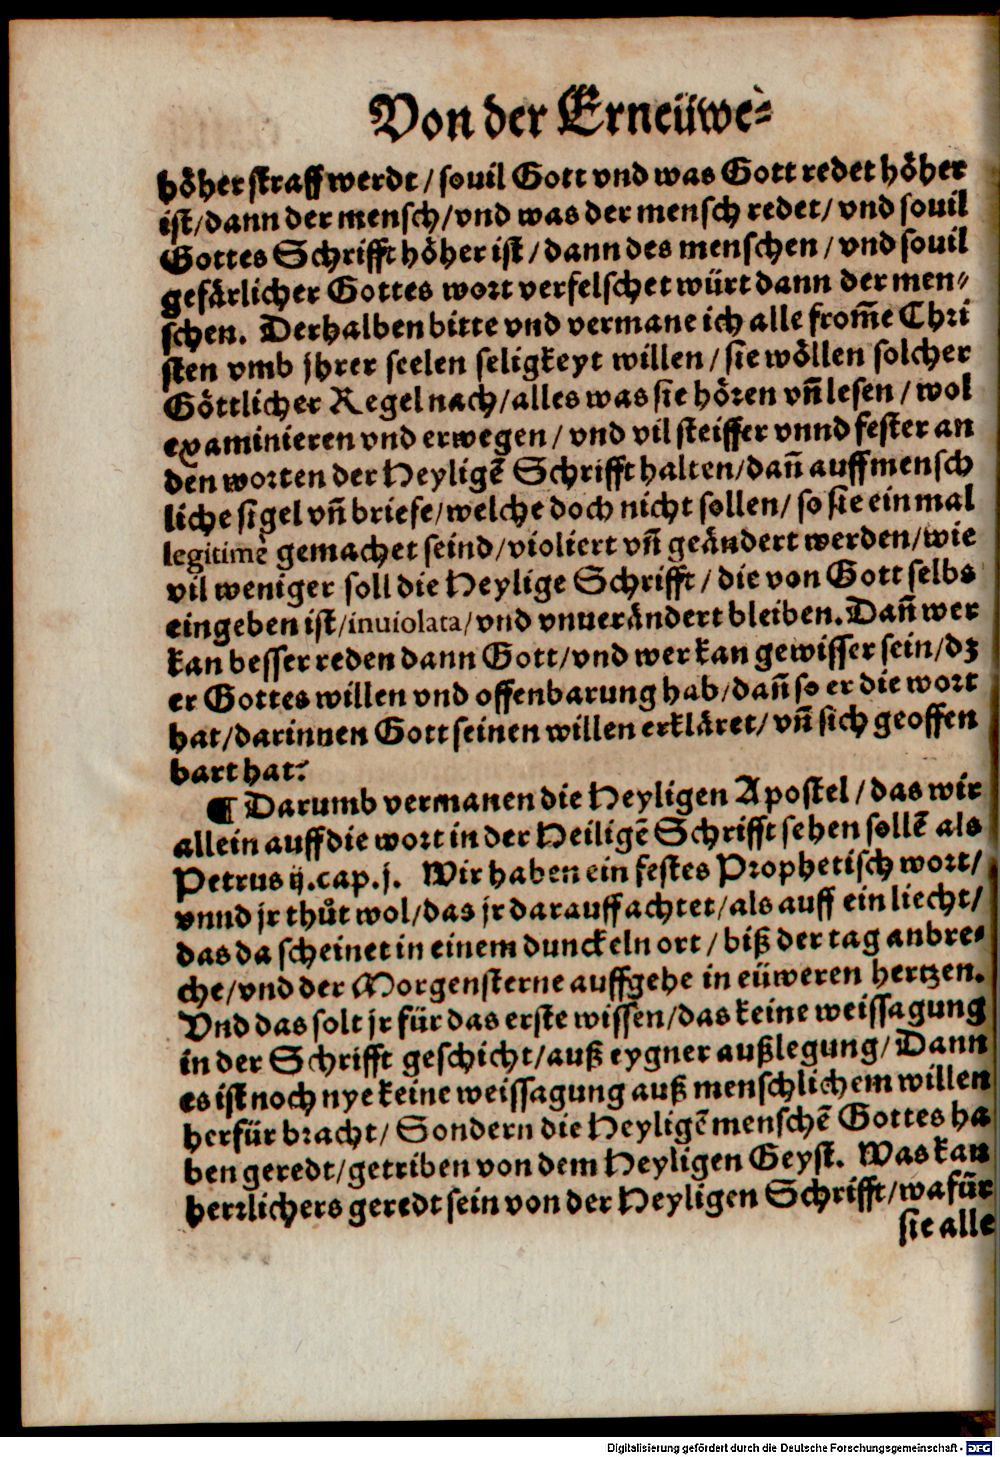 Von der Erneüwe⸗
höher straff werdt / souil Gott vnd was Gott redet höher
ist/dann der mensch/vnd was der mensch redet/ vnd souil
Gottes Schrifft höher ist / dann des menschen / vnd souil
gefärlicher Gottes wort verfelschet würt dann der men⸗
schen. Derhalben bitte vnd vermane ich alle from̃e Chri
sten vmb jhrer seelen seligkeyt willen / sie wöllen solcher
Göttlicher Regel nach/alles was sie hören vñ lesen / wol
examinieren vnd erwegen / vnd vil steiffer vnnd fester an
den worten der Heyligẽ Schrifft halten/dañ auff mensch
liche sigel vñ briefe/welche doch nicht sollen/ so sie ein mal
legitimè gemachet seind/violiert vñ geändert werden/wie
vil weniger soll die Heylige Schrifft / die von Gott selbs
eingeben ist/inuiolata/vnd vnuerändert bleiben. Dañ wer
kan besser reden dann Gott/vnd wer kan gewisser sein/dz
er Gottes willen vnd offenbarung hab/dañ so er die wort
hat/darinnen Gott seinen willen erkläret/ vñ sich geoffen
bart hat?
¶ Darumb vermanen die Heyligen Apostel / das wir
allein auff die wort in der Heiligẽ Schrifft sehen sollẽ als
Petrus ij.cap.j. Wir haben ein festes Prophetisch wort/
vnnd jr thůt wol/das jr darauff achtet/als auff ein liecht/
das da scheinet in einem dunckeln ort / biß der tag anbre⸗
che/vnd der Morgensterne auffgehe in eüweren hertzen.
Vnd das solt jr für das erste wissen/das keine weissagung
in der Schrifft geschicht/auß eygner außlegung/ Dann
es ist noch nye keine weissagung auß menschlichem willen
herfür bracht/ Sondern die Heyligẽ menschẽ Gottes ha
ben geredt/getriben von dem Heyligen Geyst. Was kan
herrlichers geredt sein von der Heyligen Schrifft/wafür
sie alle
Digitalisierung gefördert durch die Deutsche Forschungsgemeinschaft - DFG